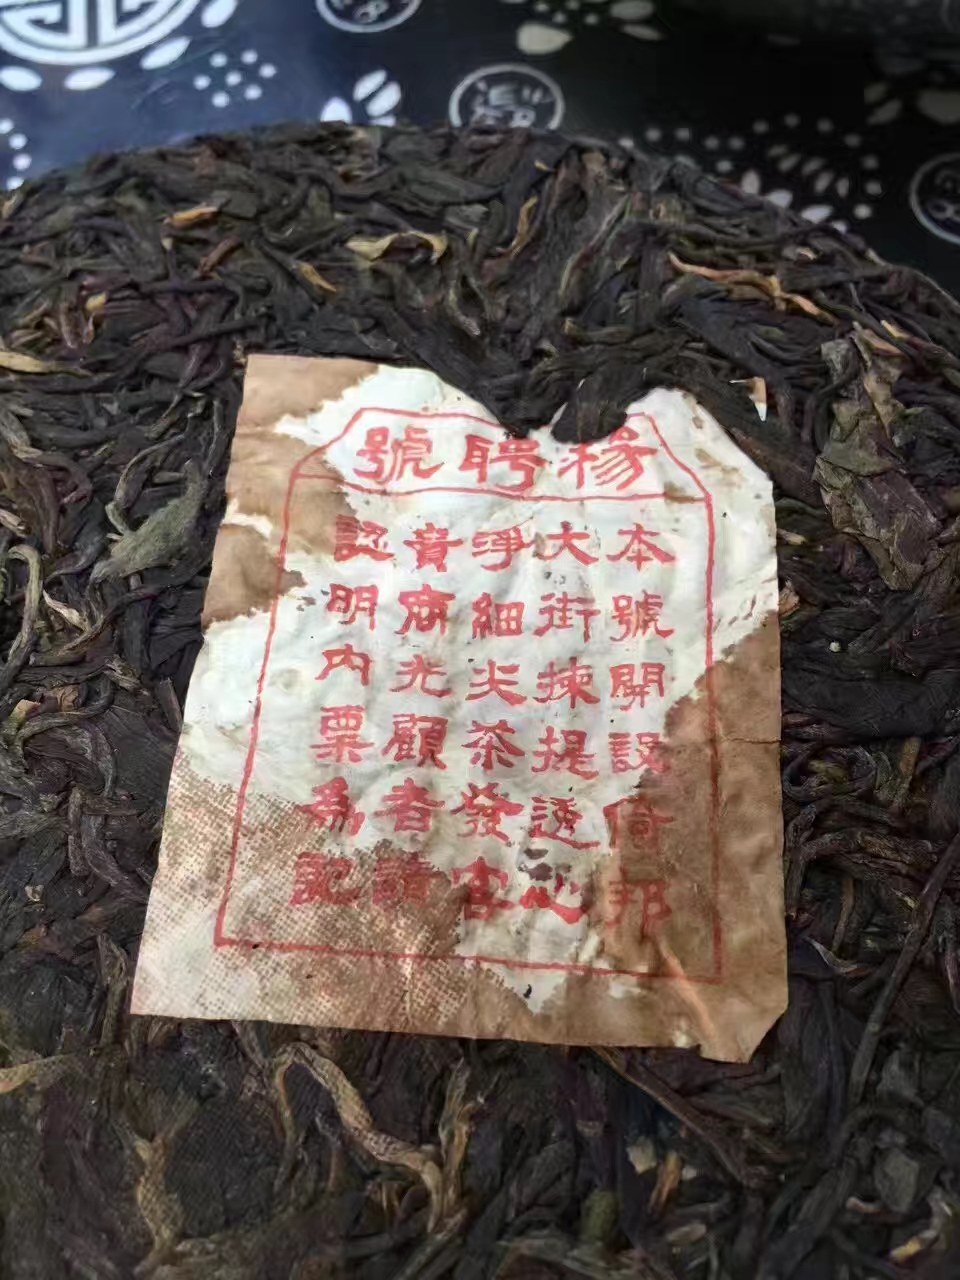 楊聘號
本號開設倚邦
大街揀提透心
淨細尖茶發客
貴商光顧者請
認明內票為記